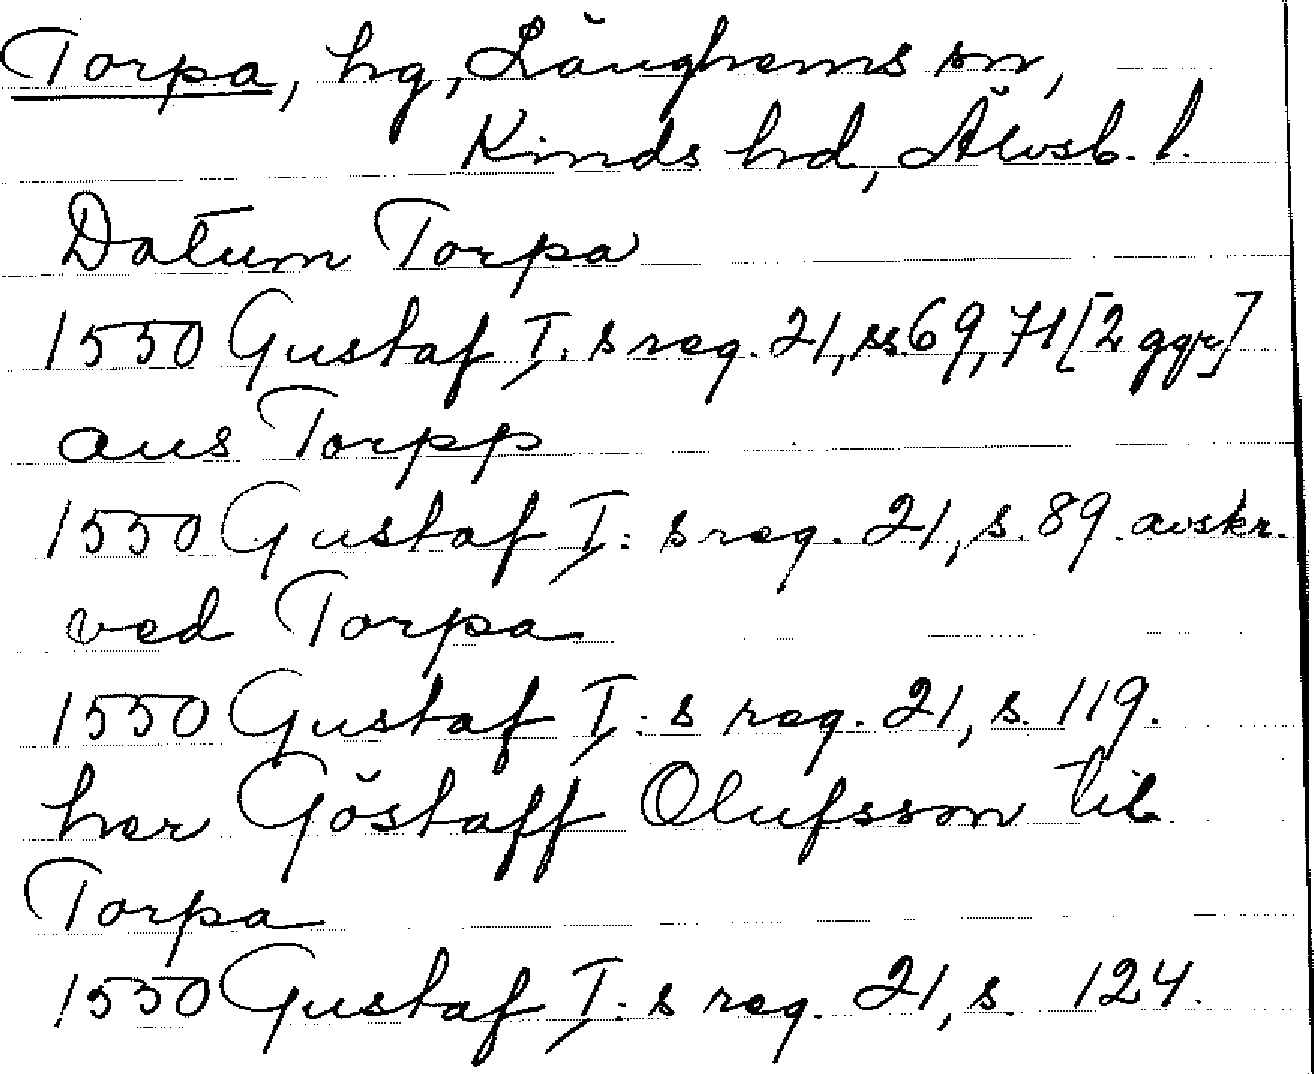 Torpa, hg, Länghems sn,
Kinds hd, Älvsb. l.
Datum Torpa
1550 Gustaf I:s reg. 21, ss. 69, 71 [2 ggr]
aus Torpp
1550 Gustaf I:s reg. 21, s. 89. avskr.
ved Torpa
1550 Gustaf I:s reg. 21, s. 119.
her Göstaff Olufsson til
Torpa
1550 Gustaf I:s reg. 21, s. 124.